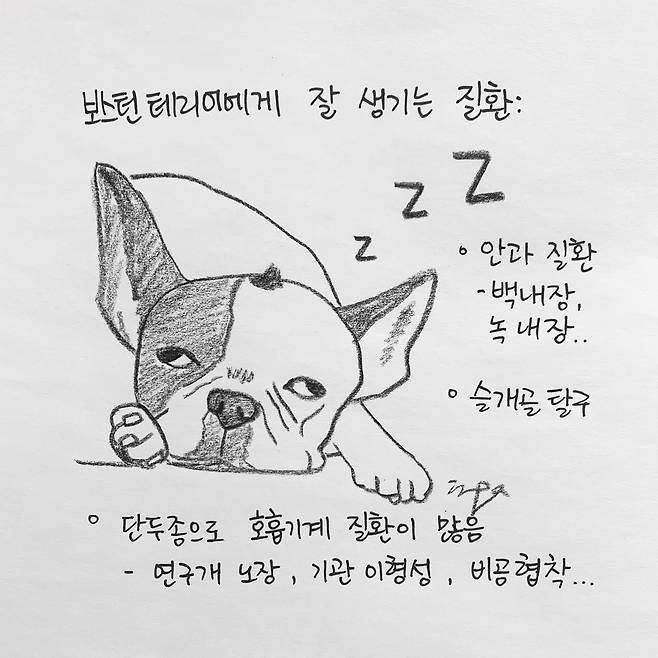 봐스턴 테리어에게 잘 생기는 질환:
z z z
° 안과 질환
- 백내장,
녹내장..
° 슬개골 탈구
° 단두종으로 호흡기계 질환이 많음
- 연구개 노장, 기관 이형성, 비공협착...